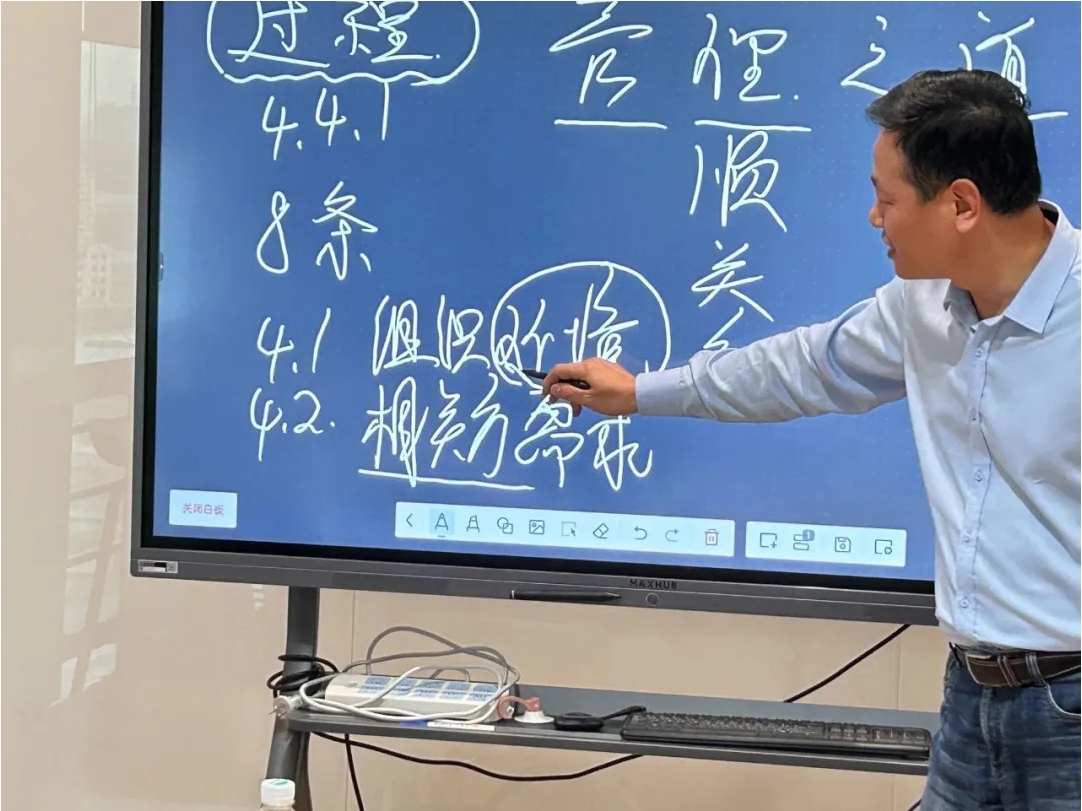 过程
管理之道
4.4.1
顺
8条
关
4.1 组织环境
4.2. 相关方需求
关闭白板
1
MAXHUB